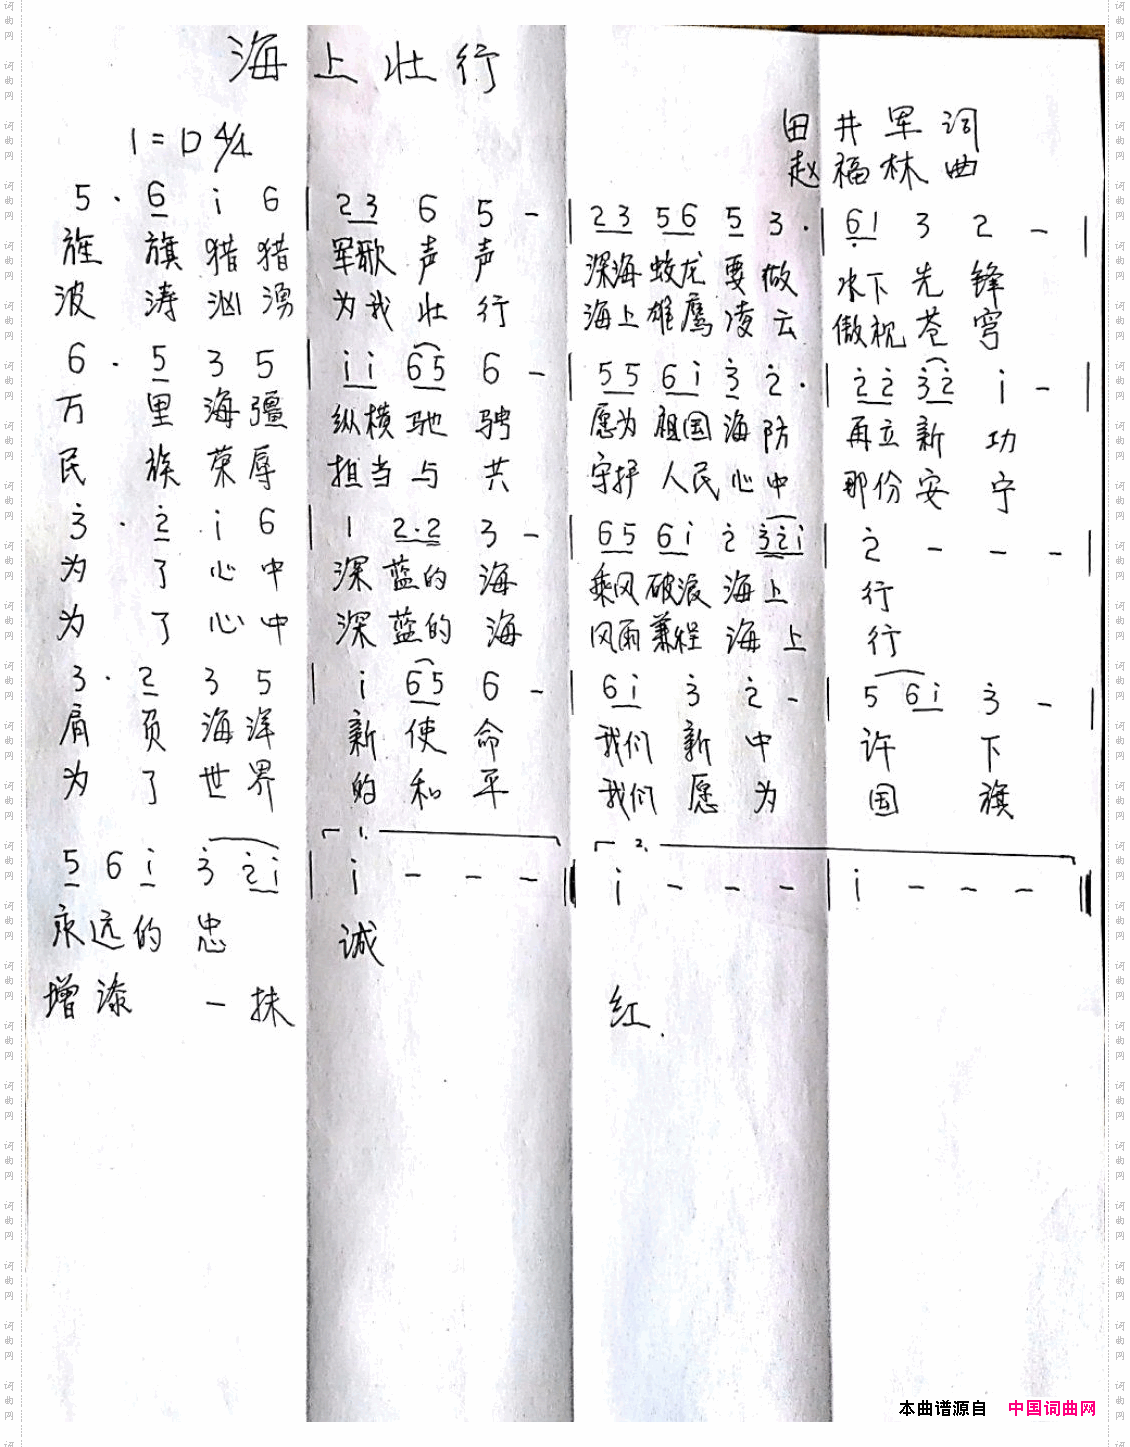 海上壮行
1=D 4/4
田井军词
赵福林曲
5 · 6 i 6 | 23 6 5 - | 23 56 5 3 · | 61 3 2 - |
旌 旗猎猎 军歌声声 深海蛟龙要做 水下先锋
波 涛汹涌 为我壮行 海上雄鹰凌云 傲视苍穹
6 · 5 3 5 | i i 65 6 - | 55 6i 3 2 · | 22 32 i - |
万 里海疆 纵横驰骋 愿为祖国海防 再立新功
民 族荣辱 担当与共 守护人民心中 那份安宁
3 · 2 i 6 | 1 2·2 3 - | 65 6i 2 32i | 2 - - - |
为 了心中 深蓝的海 乘风破浪海上 行
为 了心中 深蓝的海 风雨兼程海上 行
3 · 2 3 5 | i 65 6 - | 6i 3 2 - | 5 6i 3 - |
肩 负海洋 新使命 我们新中 许下
为 了世界 的和平 我们愿为 国旗
1. 2.
5 6 i 3 2i | i - - - | i - - - | i - - - |
永远的忠 诚
增添 一抹 红.
本曲谱源自 中国词曲网